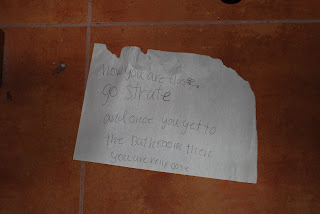 Now you are close.
go strate
and once you get to
the bathroom there
you are very